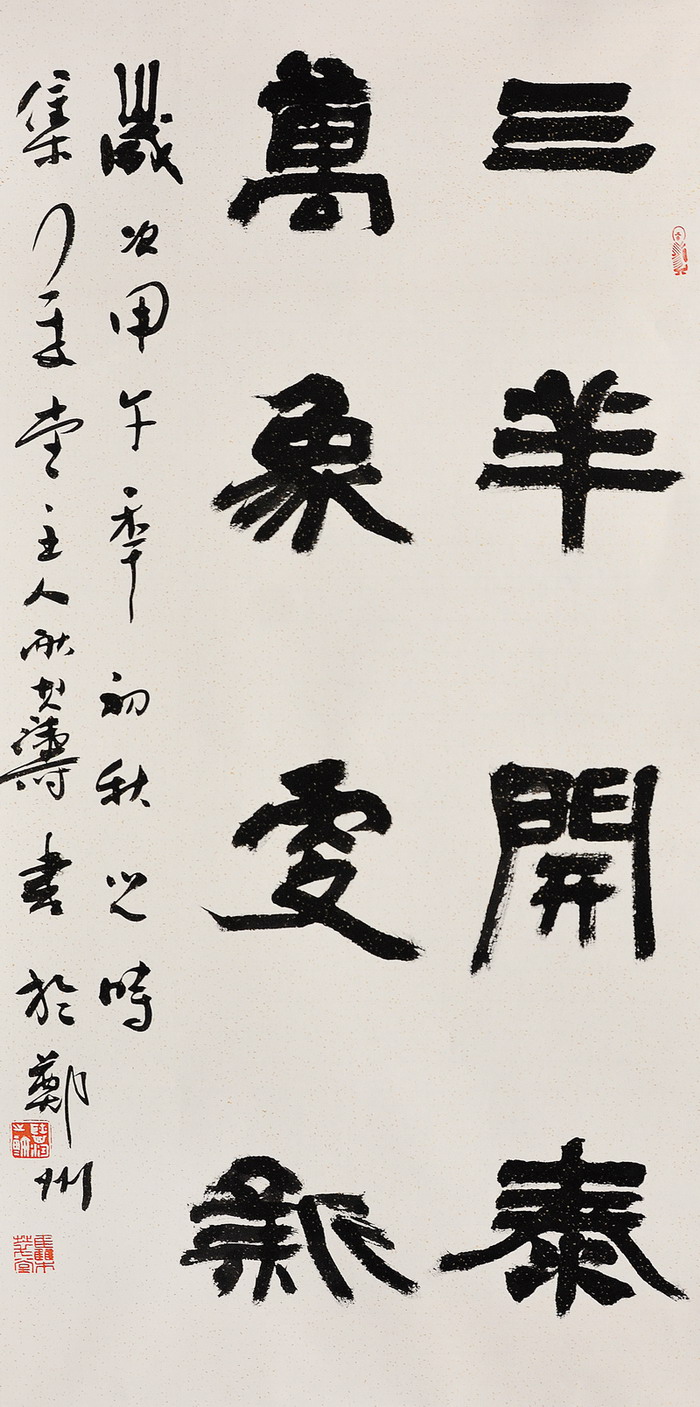 三羊開泰
萬象更新
歲次甲午年初秋之時
集 堂主人 書於鄭州